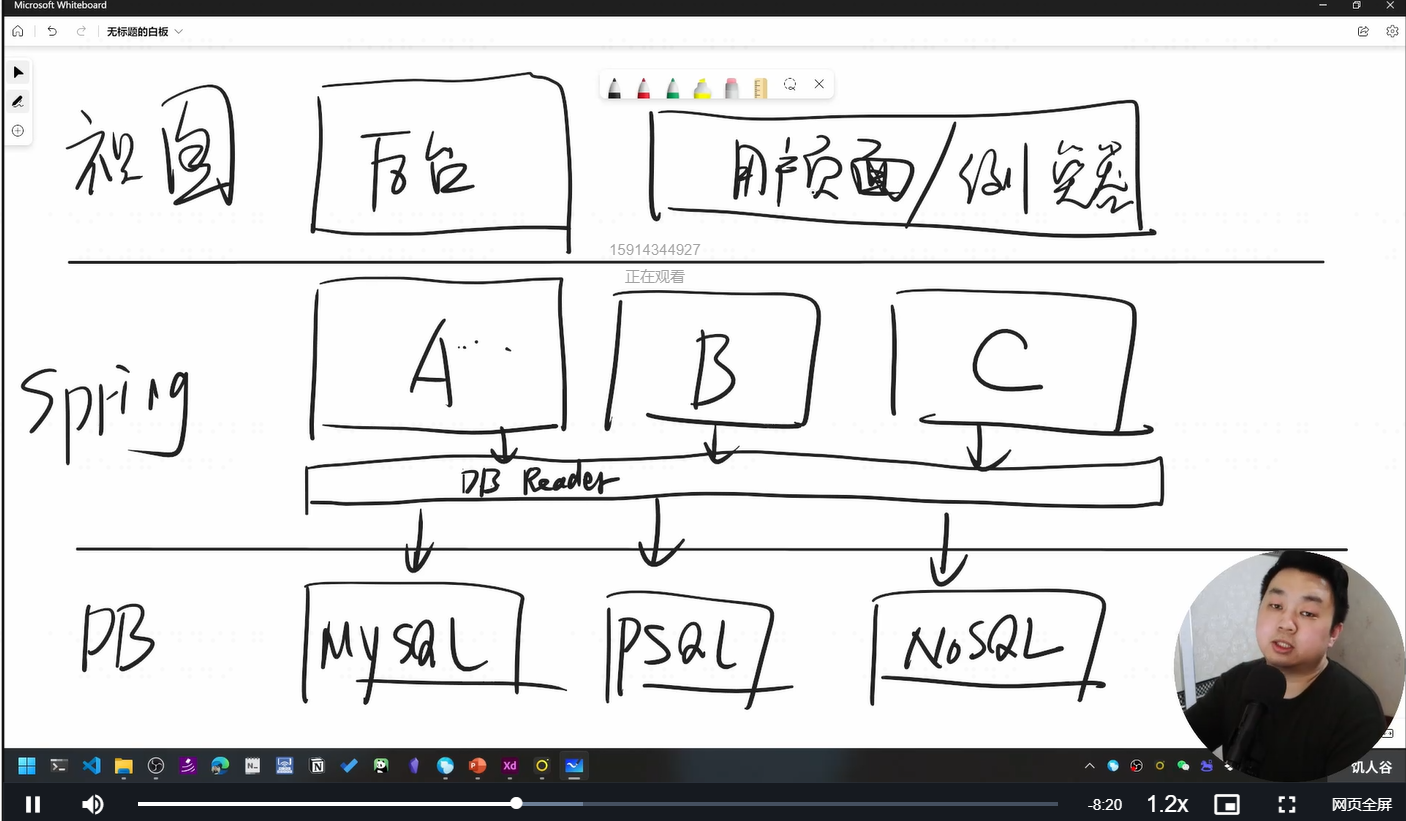 Microsoft Whiteboard
无标题的白板
视图
后台
用户页面/
15914344927
正在观看
Spring
A
B
C
DB Reader
DB
MySQL
PSQL
NoSQL
N
Xd
饥人谷
-8:20
1.2x
网页全屏